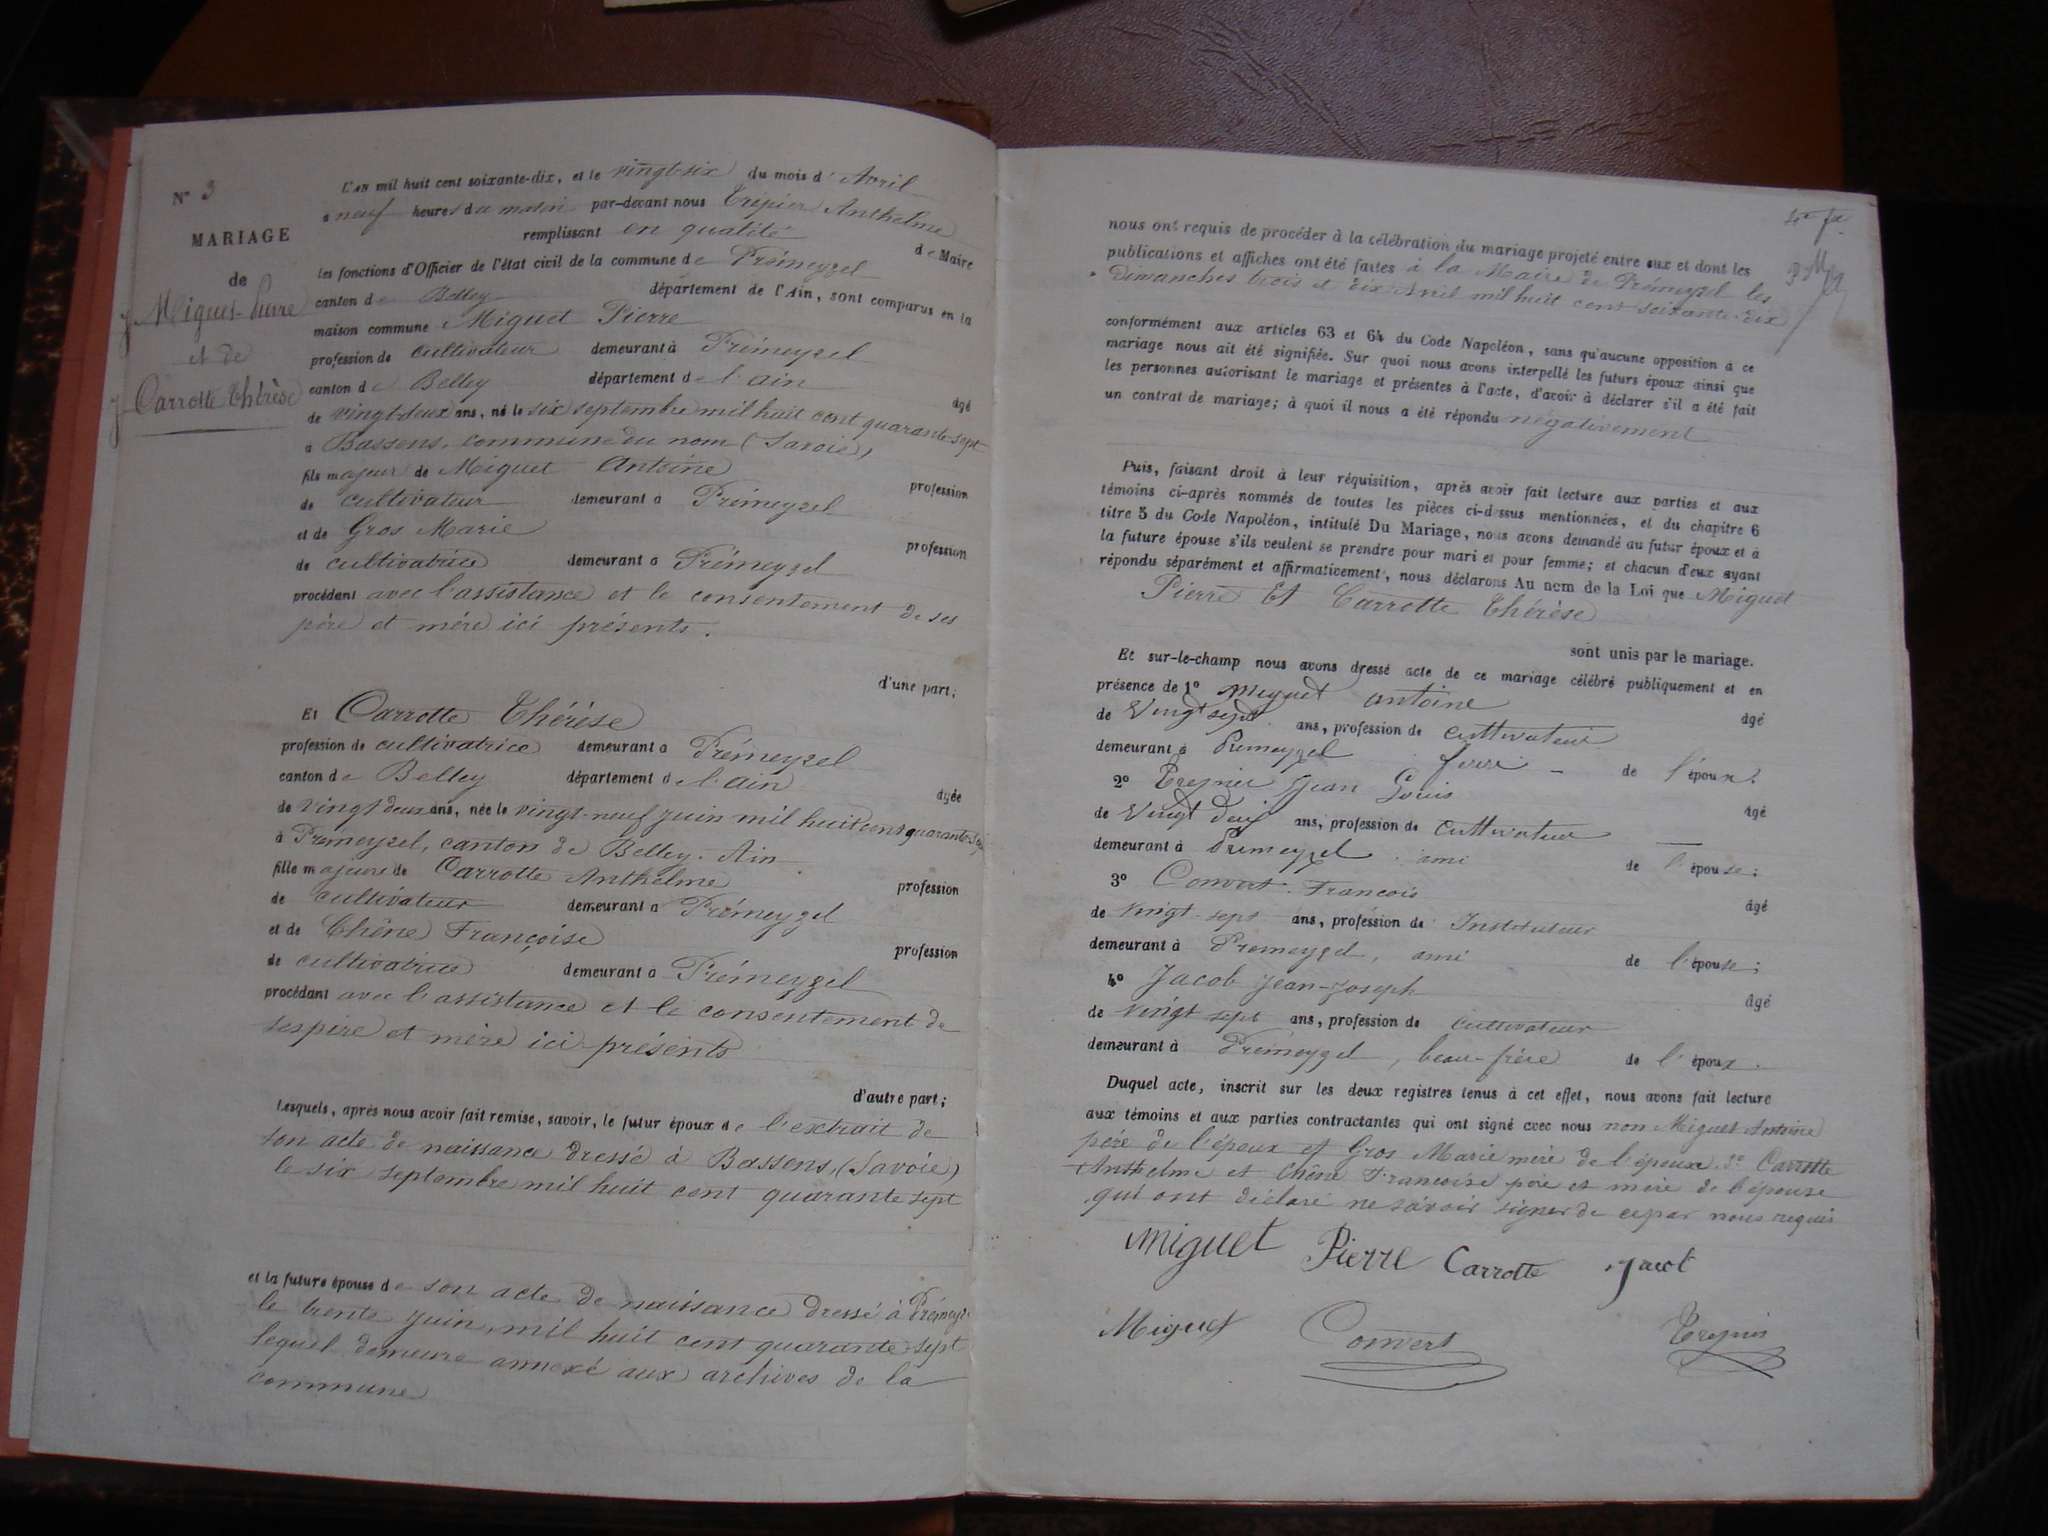 N° 3
MARIAGE
de
Miguet Pierre
et de
Carrotte Thérèse
L'AN mil huit cent soixante-dix, et le vingt-six du mois d'Avril
à neuf heures du matin par-devant nous Trépier Anthelme
remplissant en qualité de Maire
les fonctions d'Officier de l'état civil de la commune de Prémeyzel
canton de Belley département de l'Ain, sont comparus en la
maison commune Miguet Pierre
profession de cultivateur demeurant à Prémeyzel
canton de Belley département de l'ain âgé
de vingt-deux ans, né le six septembre mil huit cent quarante-sept
à Bassens, commune du nom (Savoie)
fils majeur de Miguet Antoine profession
de cultivateur demeurant à Prémeyzel
et de Gros Marie profession
de cultivatrice demeurant à Prémeyzel
procédant avec l'assistance et le consentement de ses
père et mère ici présents.
d'une part;
Et Carrotte Thérèse
profession de cultivatrice demeurant à Prémeyzel
canton de Belley département de l'ain âgée
de vingt deux ans, née le vingt-neuf juin mil huit cent quarante-sept
à Prémeyzel, canton de Belley. Ain
fille majeure de Carrotte Anthelme profession
de cultivateur demeurant à Prémeyzel
et de Chêne Françoise profession
de cultivatrice demeurant à Prémeyzel
procédant avec l'assistance et le consentement de
ses père et mère ici présents
d'autre part;
Lesquels, après nous avoir fait remise, savoir, le futur époux de l'extrait de
son acte de naissance dressé à Bassens, (Savoie)
le six septembre mil huit cent quarante sept
et la future épouse de son acte de naissance dressé à Prémeyzel
le trente juin, mil huit cent quarante-sept
lequel demeure annexé aux archives de la
commune
nous ont requis de procéder à la célébration du mariage projeté entre eux et dont les
publications et affiches ont été faites à la Mairie de Prémeyzel les
Dimanches trois et dix Avril mil huit cent soixante-dix
conformément aux articles 63 et 64 du Code Napoléon, sans qu'aucune opposition à ce
mariage nous ait été signifiée. Sur quoi nous avons interpellé les futurs époux ainsi que
les personnes autorisant le mariage et présentes à l'acte, d'avoir à déclarer s'il a été fait
un contrat de mariage; à quoi il nous a été répondu négativement
Puis, faisant droit à leur réquisition, après avoir fait lecture aux parties et aux
témoins ci-après nommés de toutes les pièces ci-dessus mentionnées, et du chapitre 6
titre 5 du Code Napoléon, intitulé Du Mariage, nous avons demandé au futur époux et à
la future épouse s'ils veulent se prendre pour mari et pour femme; et chacun d'eux ayant
répondu séparément et affirmativement, nous déclarons Au nom de la Loi que Miguet
Pierre Et Carrotte Thérèse
sont unis par le mariage.
Et sur-le-champ nous avons dressé acte de ce mariage célébré publiquement et en
présence de 1° Miguet antoine âgé
de Vingt sept ans, profession de cultivateur
demeurant à Premeyzel frere de l'époux.
2° Trepier Jean Louis âgé
de Vingt deux ans, profession de cultivateur
demeurant à Premeyzel ami de l'épouse;
3° Convert François âgé
de vingt-sept ans, profession de Instituteur
demeurant à Premeyzel, ami de l'épouse;
4° Jacob Jean-Joseph âgé
de vingt sept ans, profession de cultivateur
demeurant à Premeyzel, beau-frère de l'époux.
Duquel acte, inscrit sur les deux registres tenus à cet effet, nous avons fait lecture
aux témoins et aux parties contractantes qui ont signé avec nous non Miguet Antoine
père de l'époux et Gros Marie mère de l'époux Carrotte
Anthelme et Chêne Françoise père et mère de l'épouse
qui ont déclaré ne savoir signer de ce par nous requis
Miguet Pierre Carrotte Jacob
Miguet Convert Trepier